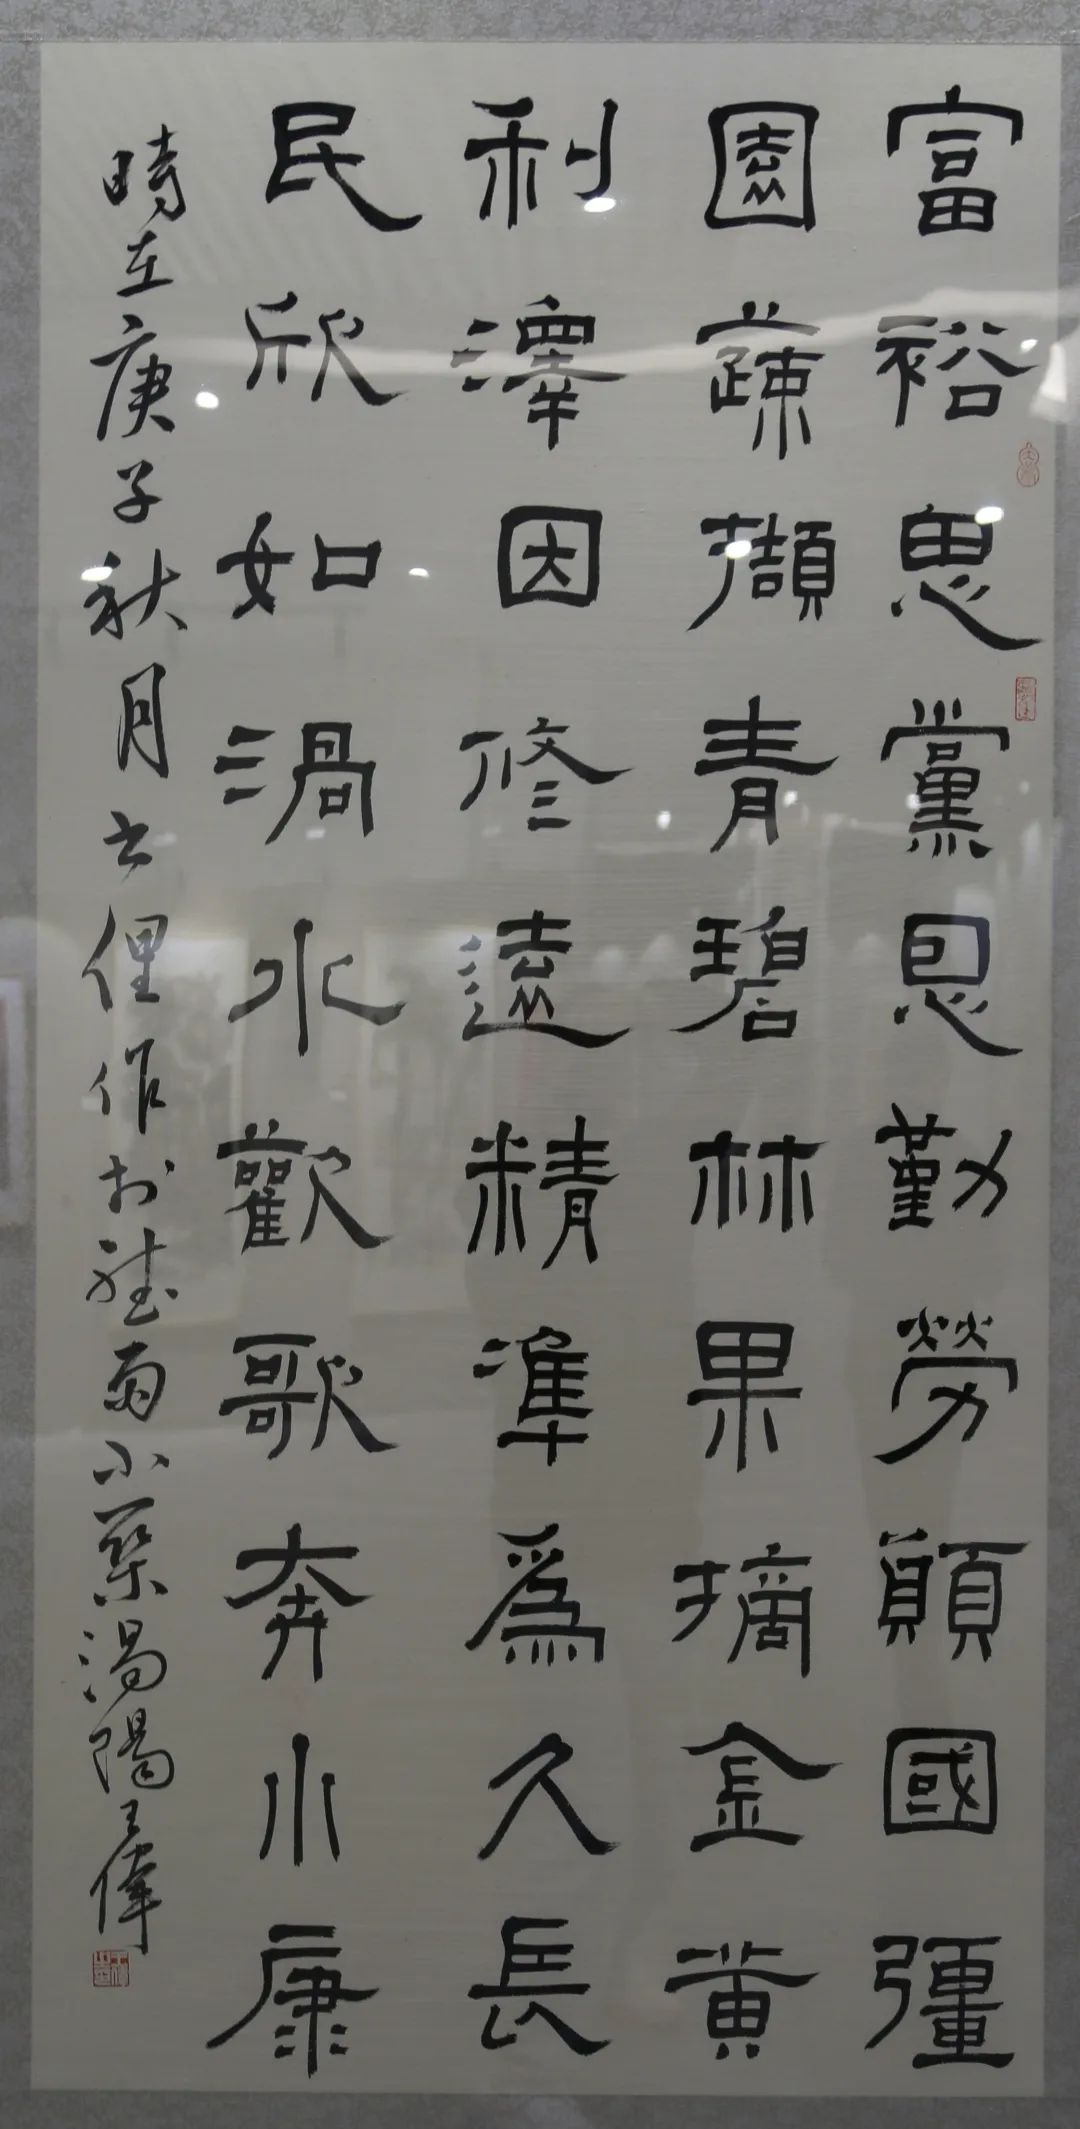 富裕思黨恩勤勞顚國彊
園蔬擷青碧林果摘金黄
利澤因修遠精準爲久長
民欣如渦水歡歌奔小康
時在庚子秋月書俚作於聽雨小築渦陽王偉